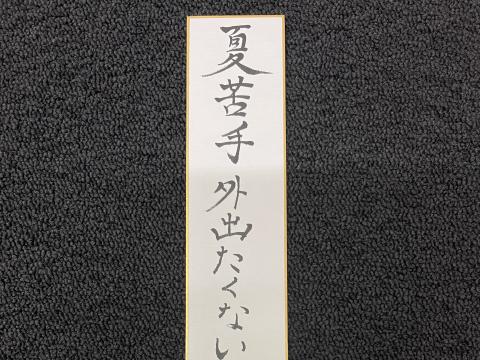 夏苦手外出たくない